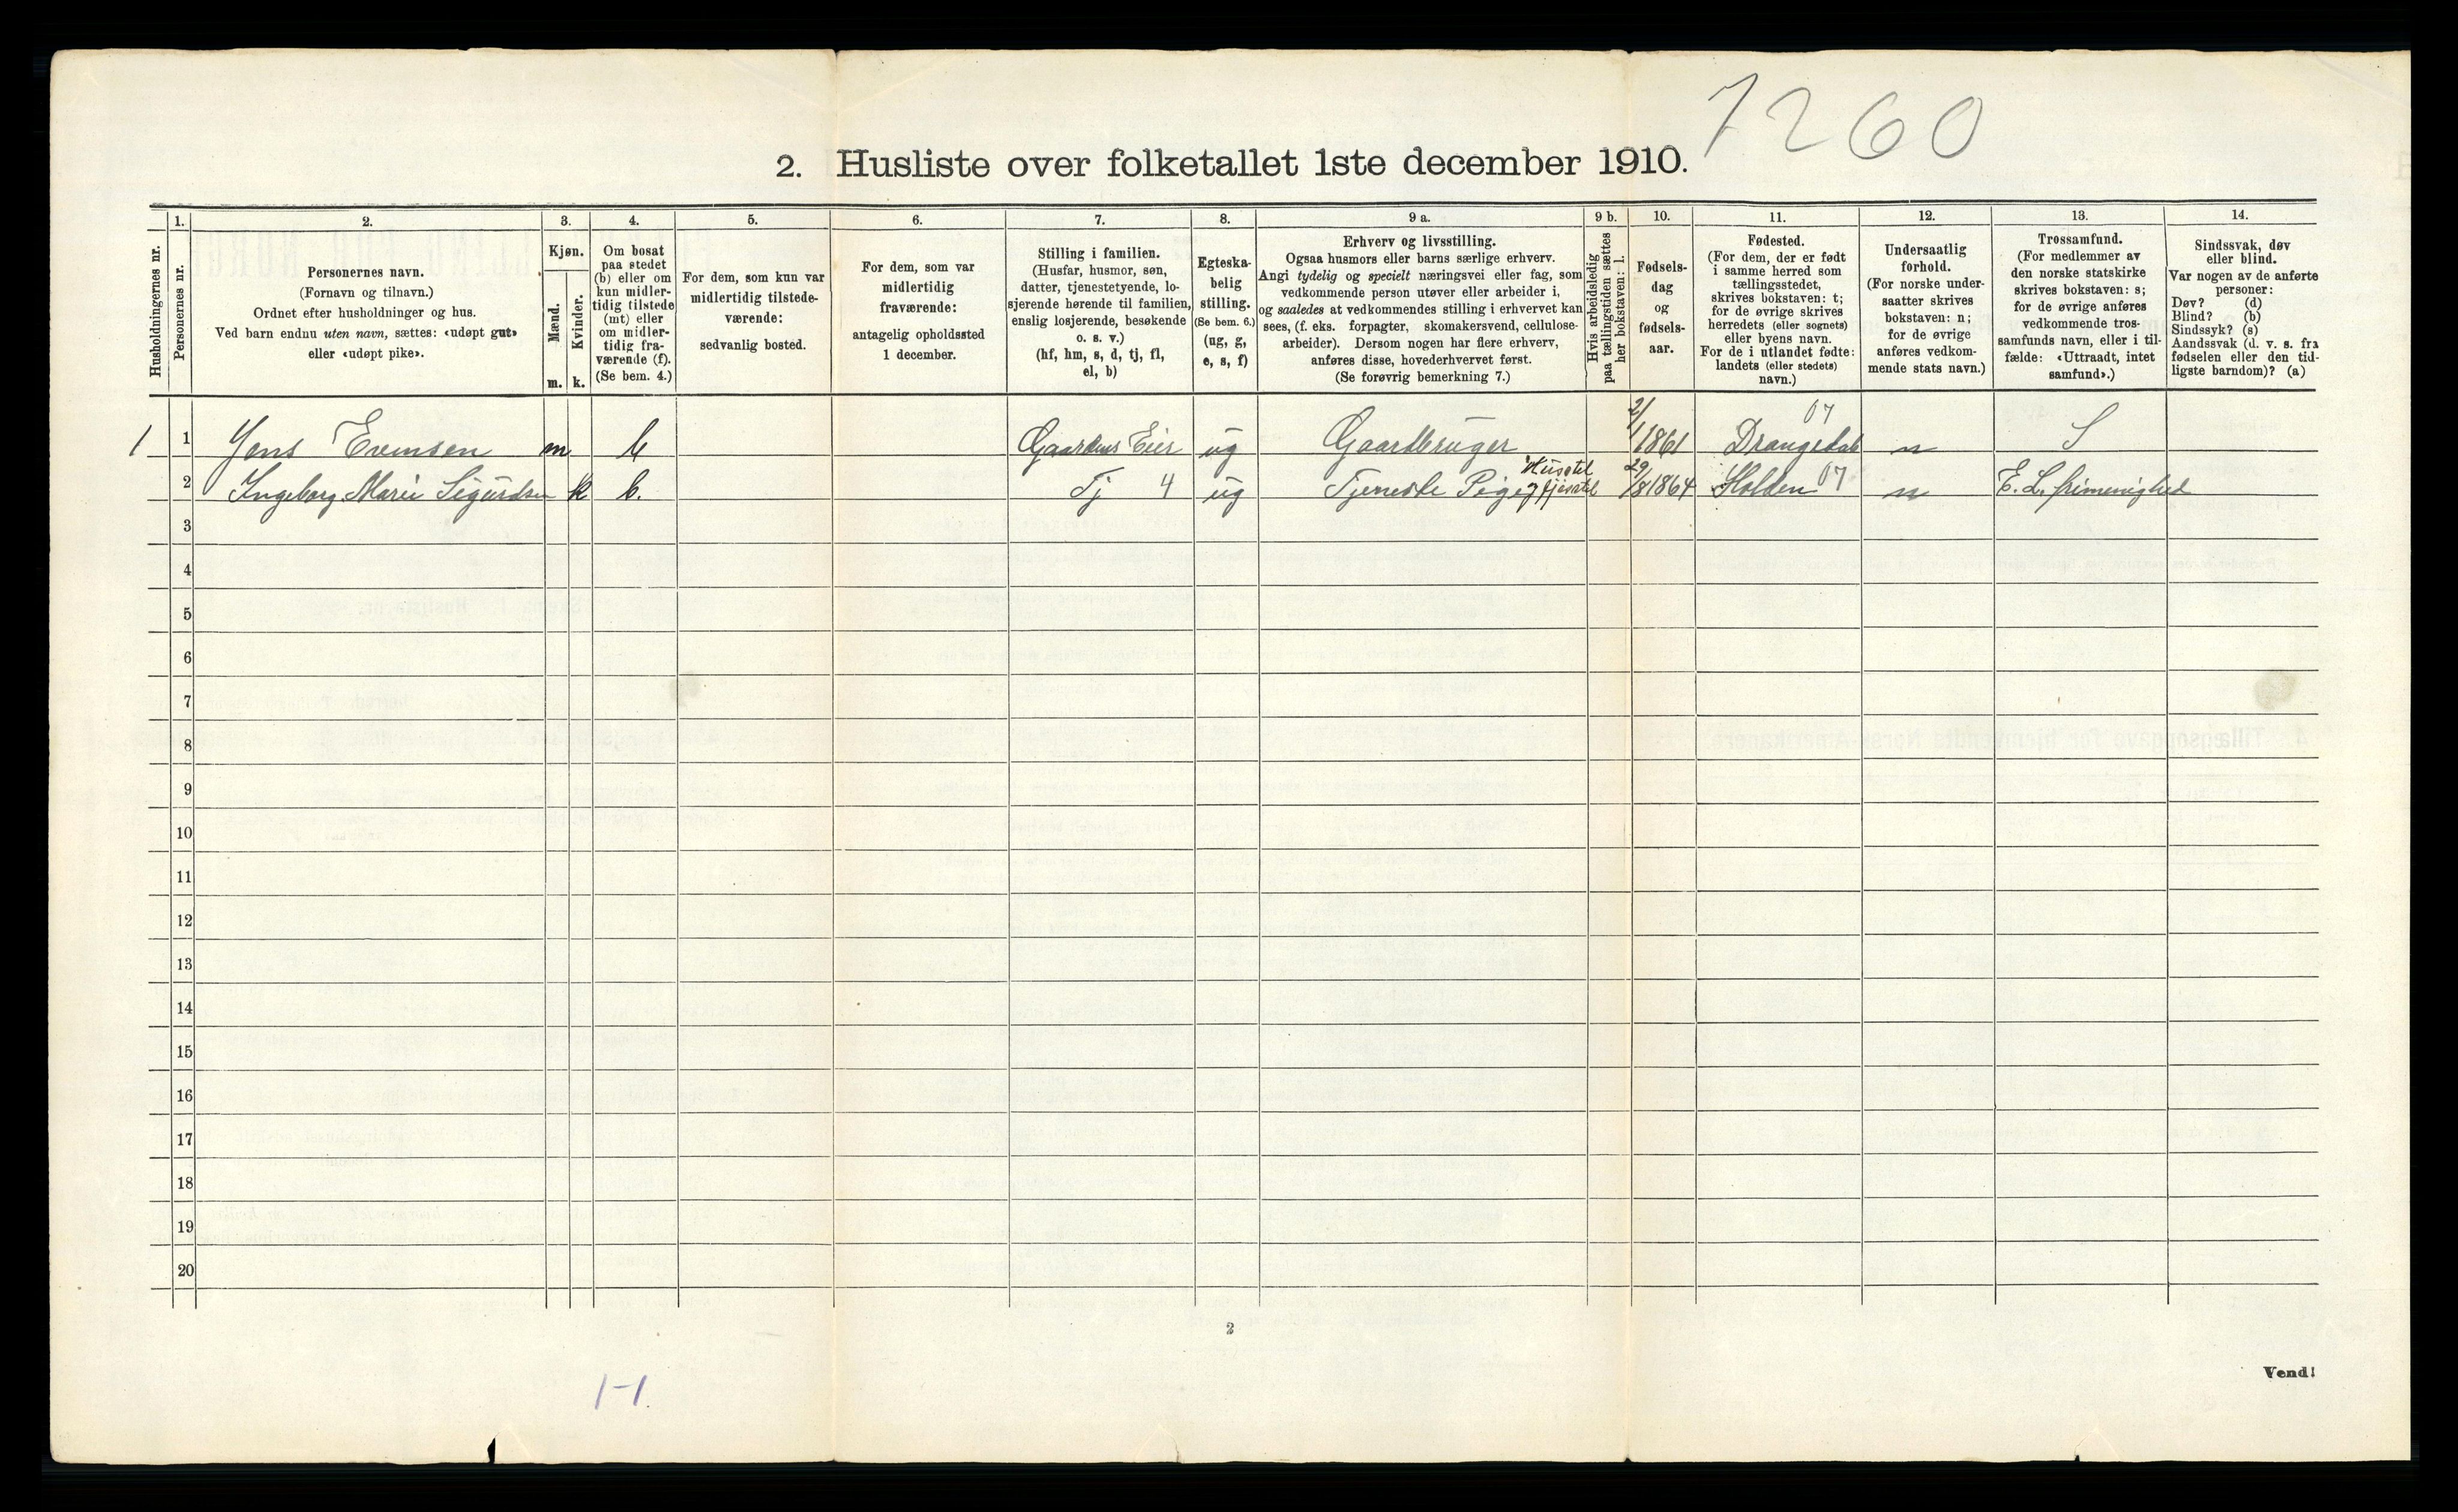 7260
2. Husliste over folketallet 1ste december 1910.
Husholdningernes nr.
1.
Personernes nr.
2.
Personernes navn.
(Fornavn og tilnavn.)
Ordnet efter husholdninger og hus.
Ved barn endnu uten navn, sættes: «udøpt gut»
eller «udøpt pike».
3.
Kjøn.
Mænd.
Kvinder.
m. k.
4.
Om bosat
paa stedet
(b) eller om
kun midler-
tidig tilstede
(mt) eller
om midler-
tidig fra-
værende (f).
(Se bem. 4.)
5.
For dem, som kun var
midlertidig tilstede-
værende:
sedvanlig bosted.
6.
For dem, som var
midlertidig
fraværende:
antagelig opholdssted
1 december.
7.
Stilling i familien.
(Husfar, husmor, søn,
datter, tjenestetyende, lo-
sjerende hørende til familien,
enslig losjerende, besøkende
o. s. v.)
(hf, hm, s, d, tj, fl,
el, b)
8.
Egteska-
belig
stilling.
(Se bem. 6.)
(ug, g,
e, s, f)
9 a.
Erhverv og livsstilling.
Ogsaa husmors eller barns særlige erhverv.
Angi tydelig og specielt næringsvei eller fag, som
vedkommende person utøver eller arbeider i,
og saaledes at vedkommendes stilling i erhvervet kan
sees, (f. eks. forpagter, skomakersvend, cellulose-
arbeider). Dersom nogen har flere erhverv,
anføres disse, hovederhvervet først.
(Se forøvrig bemerkning 7.)
9 b.
Hvis arbeidsledig
paa tællingstiden sættes
her bokstaven: l.
10.
Fødsels-
dag
og
fødsels-
aar.
11.
Fødested.
(For dem, der er født
i samme herred som
tællingsstedet,
skrives bokstaven: t;
for de øvrige skrives
herredets (eller sognets)
eller byens navn.
For de i utlandet fødte:
landets (eller stedets)
navn.)
12.
Undersaatlig
forhold.
(For norske under-
saatter skrives
bokstaven: n;
for de øvrige
anføres vedkom-
mende stats navn.)
13.
Trossamfund.
(For medlemmer av
den norske statskirke
skrives bokstaven: s;
for de øvrige anføres
vedkommende tros-
samfunds navn, eller i til-
fælde: «Uttraadt, intet
samfund».)
14.
Sindssvak, døv
eller blind.
Var nogen av de anførte
personer:
Døv? (d)
Blind? (b)
Sindssyk? (s)
Aandssvak (d. v. s. fra
fødselen eller den tid-
ligste barndom)? (a)
1 1 Jens Evensen m b Gaardens Eier ug Gaardbruger 2/1 1861 Drangedal 07 n S
2 Ingeborg Marie Sigurdsen k b. Tj 4 ug Tjeneste Pige Husstel og fjøsstel 29/8 1864 Holden 07 n E. L. frimenighed
3
4
5
6
7
8
9
10
11
12
13
14
15
16
17
18
19
20
2
Vend!
1-1.